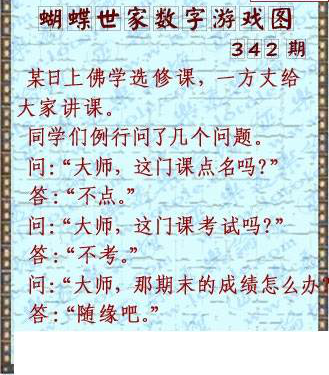 蝴蝶世家数字游戏图
342期
某日上佛学选修课，一方丈给
大家讲课。
同学们例行问了几个问题。
问：“大师，这门课点名吗？”
答：“不点。”
问：“大师，这门课考试吗？”
答：“不考。”
问：“大师，那期末的成绩怎么办”
答：“随缘吧。”